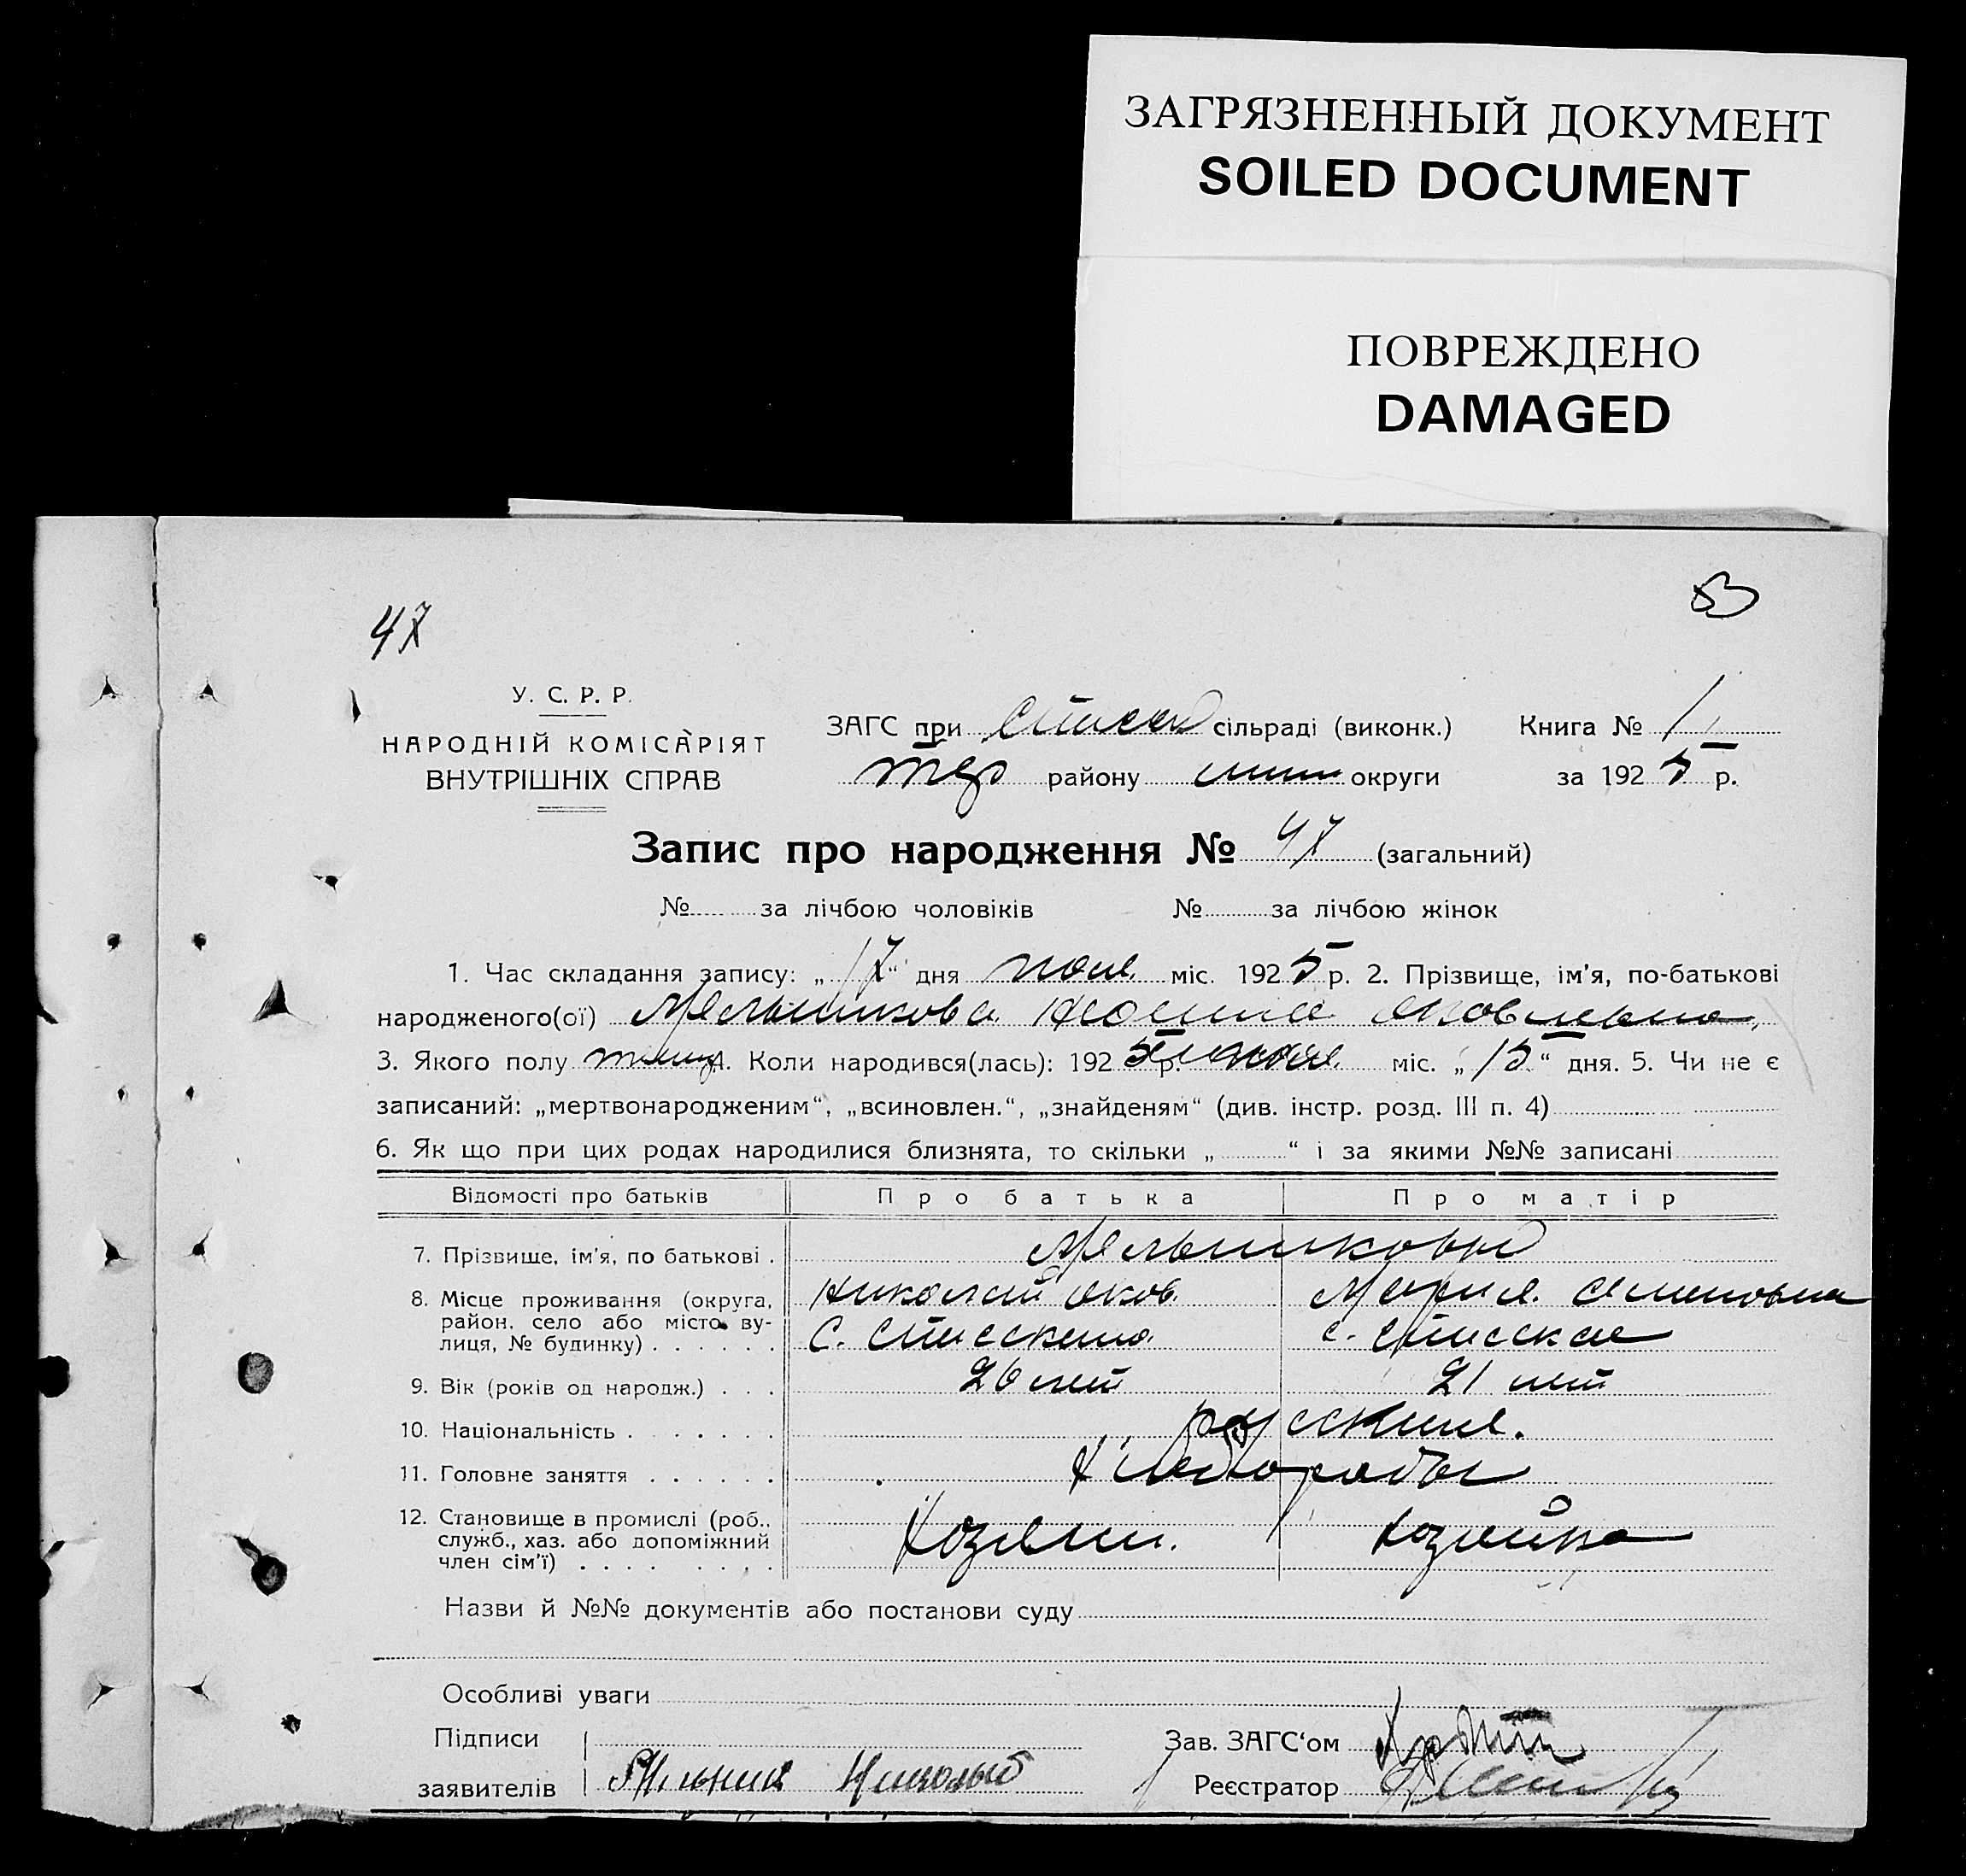 ЗАГРЯЗНЕННЫЙ ДОКУМЕНТ
SOILED DOCUMENT
ПОВРЕЖДЕНО
DAMAGED
53
47
У. С. Р. Р.
НАРОДНІЙ КОМІСАРІЯТ
ВНУТРІШНІХ СПРАВ
ЗАГС при сільраді (виконк.) Книга № 1
району округи за 1925 р.
Запис про народження № 47 (загальний)
№ за лічбою чоловіків № за лічбою жінок
1. Час складання запису: „17“ дня міс. 1925 р. 2. Прізвище, ім'я, по-батькові
народженого(ої) Мельникова
3. Якого полу 4. Коли народився(лась): 1925 р. міс. „15“ дня. 5. Чи не є
записаний: „мертвонародженим“, „всиновлен.“, „знайденям“ (див. інстр. розд. III п. 4)
6. Як що при цих родах народилися близнята, то скільки „ “ і за якими №№ записані
Відомості про батьків Про батька Про матір
7. Прізвище, ім'я, по батькові . Мельниковы
8. Місце проживання (округа, Николай Яков. Мария Семеновна
район. село або місто ву-
лиця, № будинку) . . . . . . с. с.
9. Вік (років од народж.) . . . 26 лет 21 лет
10. Національність . . . . . . . русские.
11. Головне заняття . . . . . . Хлеборобы
12. Становище в промислі (роб.,
служб., хаз. або допоміжний Хозяин. хозяйка
член сім'ї) . . . . . . . .
Назви й №№ документів або постанови суду
Особливі уваги
Підписи Зав. ЗАГС‘ом
заявителів Николай Реєстратор